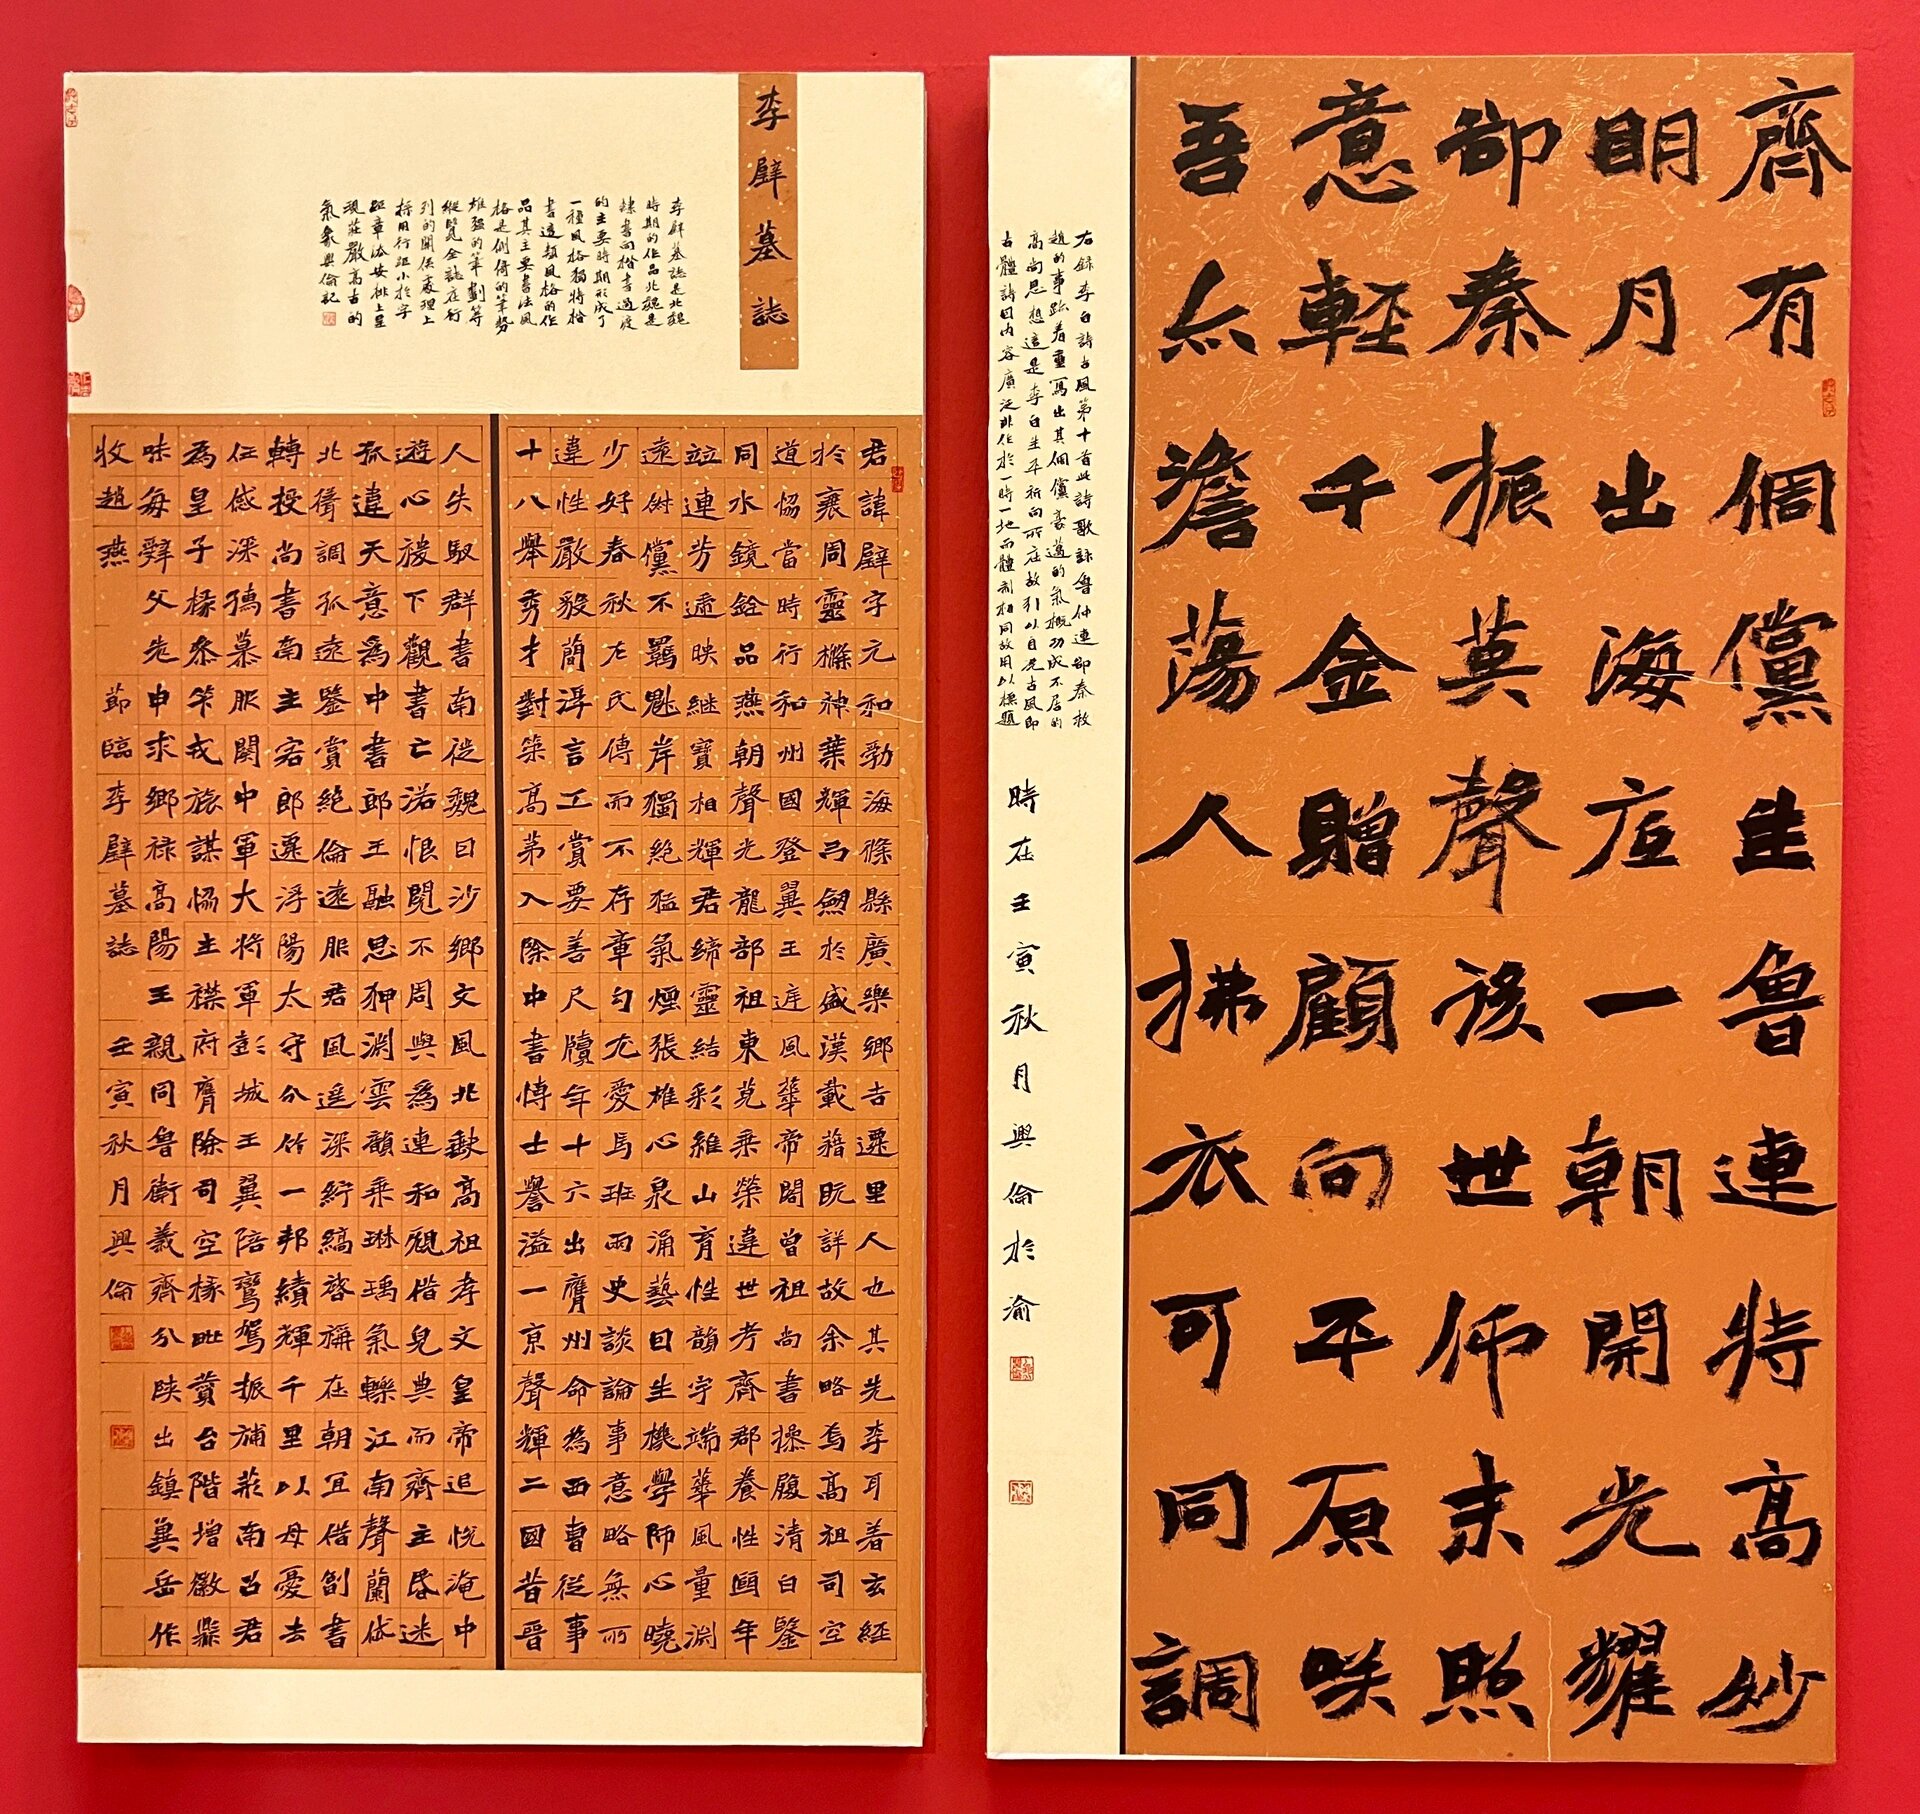 李璧墓誌
李璧墓誌是北魏
時期的作品北魏是
隸書向楷書過度
的主要時期形成了
一種風格獨特楷
書這類風格的作
品其主要書法風
格是側倚的筆勢
雄強的筆劃等
縱覽全誌在行
列的關係處理上
採用行距小於字
距章法安排上呈
現莊嚴高古的
氣象興倫記
君諱璧字元和勃海條縣廣樂鄉吉遷里人也其先李耳著玄經
於襄周靈櫟神葉輝弓劒於盛漢載藉既詳故余略焉高祖司空
道協當時行和州國登翼王庭風華帝閣曾祖尚書操履清白鑒
同水鏡銓品燕朝聲光龍部祖東莞乘榮違世考齊郡養性頤年
竝連芳遞映繼寶相輝君締靈結彩維山育性韻宇端華風量淵
遠倜儻不羈魁岸獨絕猛氣煙張雄心泉涌藝曰生機學師心曉
少好春秋左氏傳而不存章句尤愛馬班兩史談論事意略無所
違性嚴毅簡得言工賞要善尺牘年十六出膺州命為西曹從事
十八舉秀才對策高第入除中書博士譽溢一京聲輝二國昔晉
人失馭群書南徙魏曰沙鄉文風北缺高祖孝文皇帝追悅淹中
遊心稷下觀書亡落恨閱不周與為連和規借完典而齊主昏迷
孤違天意為中書郎王融思狎淵雲韻乘琳瑀氣轢江南聲蘭岱
北聳調孤遠鑒賞絕倫遠服君風遙深紵縞啓稱在朝宜借副書
轉授尚書南主客郎遷浮陽太守分竹一邦績輝千里以母憂去
任感深孺慕服闋中軍大將軍彭城王翼陪鸞駕振旆荊南召君
為皇子掾參笇戎旅謀協主襟府膺除司空掾毗贊台階增徽鼎
味每璧父先申求鄉祿高陽王親同魯衛義齊分陝出鎮冀岳作
牧趙燕 節臨李璧墓誌 壬寅秋月興倫
齊有倜儻生魯連特高妙
明月出海底一朝開光耀
卻秦振英聲後世仰末照
意輕千金贈顧向平原咲
吾亦澹蕩人拂衣可同調
右錄李白詩古風第十首此詩歌詠魯仲連卻秦救
趙的事跡着重寫出其倜儻豪邁的氣概功成不居的
高尚思想這是李白生平祈向所在故引以自况古風即
古體詩因內容廣泛非作於一時一地而體制相同故用以標題
時在壬寅秋月興倫於渝